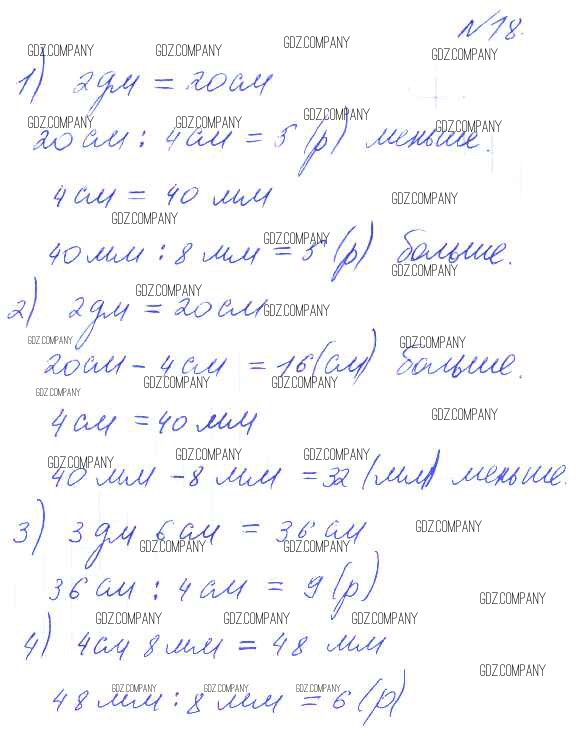 №18.
GDZ.COMPANY GDZ.COMPANY GDZ.COMPANY GDZ.COMPANY
1) 2дм = 20см
GDZ.COMPANY GDZ.COMPANY GDZ.COMPANY GDZ.COMPANY
20см : 4см = 5 (р) меньше.
4см = 40 мм
GDZ.COMPANY GDZ.COMPANY
40мм : 8 мм = 5 (р) больше.
GDZ.COMPANY GDZ.COMPANY
2) 2дм = 20см
GDZ.COMPANY GDZ.COMPANY
GDZ.COMPANY GDZ.COMPANY
20см - 4см = 16(см) больше.
GDZ.COMPANY GDZ.COMPANY GDZ.COMPANY
4см = 40мм
GDZ.COMPANY
GDZ.COMPANY GDZ.COMPANY GDZ.COMPANY
40 мм - 8 мм = 32 (мм) меньше.
3) 3 дм 6см = 36 см
GDZ.COMPANY
GDZ.COMPANY GDZ.COMPANY
36см : 4см = 9(р)
GDZ.COMPANY
GDZ.COMPANY GDZ.COMPANY GDZ.COMPANY
4) 4см 8мм = 48 мм
GDZ.COMPANY
GDZ.COMPANY GDZ.COMPANY GDZ.COMPANY
48мм : 8 мм = 6 (р)